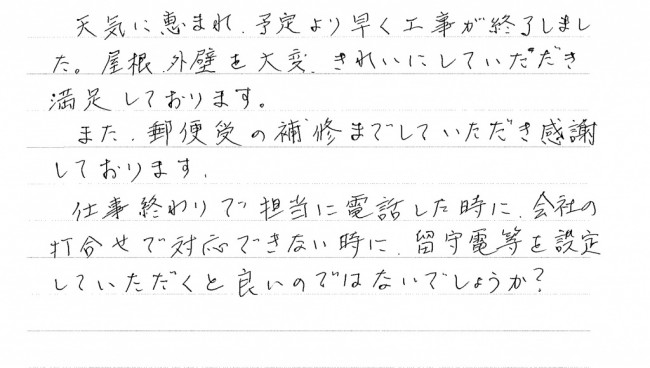 天気に恵まれ、予定より早く工事が終了しまし
た。屋根、外壁を大変、きれいにしていただき
満足しております。
また、郵便受の補修までしていただき感謝
しております。
仕事終わりで担当に電話した時に、会社の
打合せで対応できない時に、留守電等を設定
していただくと良いのではないでしょうか?